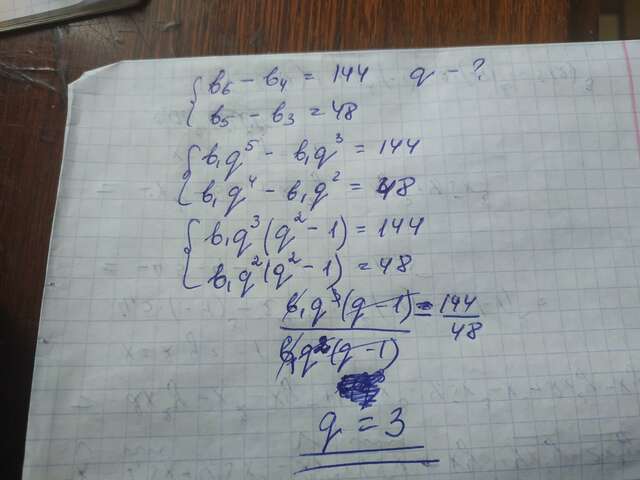 b₆ - b₄ = 144 . q - ?
b₅ - b₃ = 48
b₁q⁵ - b₁q³ = 144
b₁q⁴ - b₁q² = 48
b₁q³(q² - 1) = 144
b₁q²(q² - 1) = 48
b₁q³(q - 1) = 144
b₁q²(q - 1) 48
q = 3